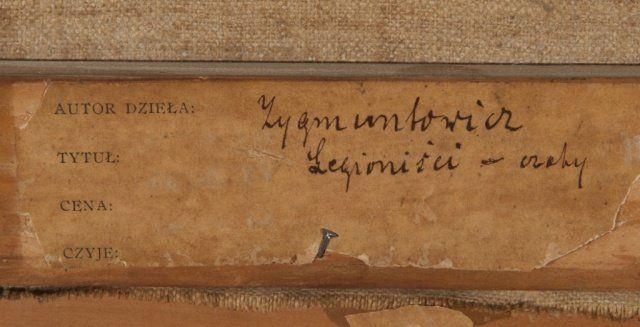 AUTOR DZIEŁA: Zygmuntowicz
TYTUŁ: Legioniści - czaty
CENA:
CZYJE: